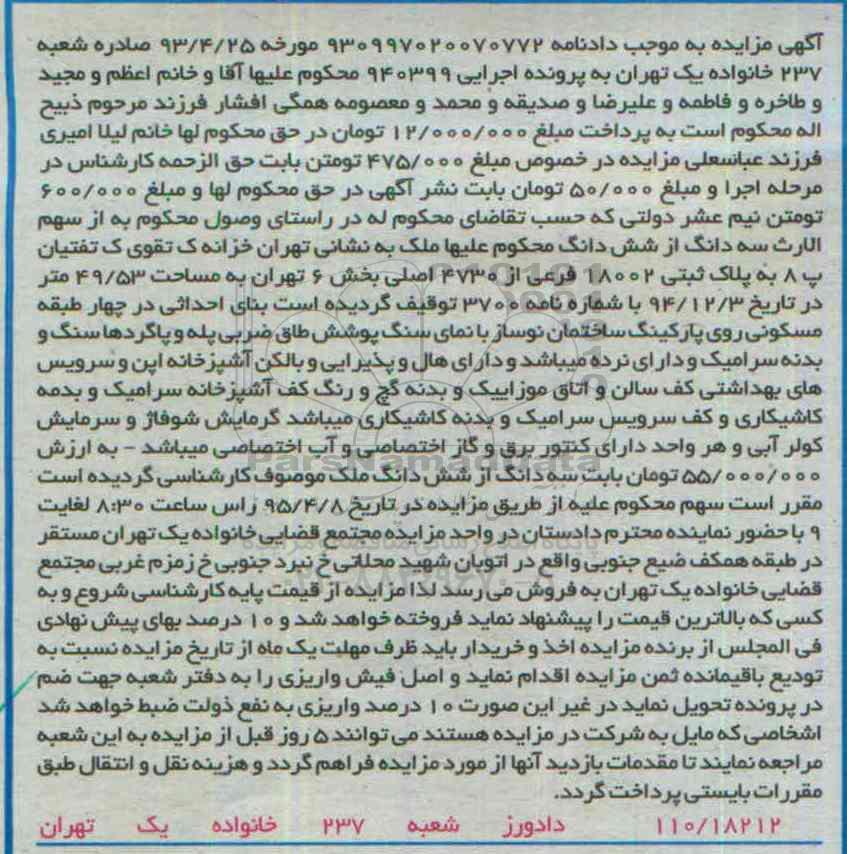 آگهی مزایده به موجب دادنامه ۹۳۰۹۹۷۰۲۰۰۷۰۷۷۲ مورخه ۹۳/۴/۲۵ صادره شعبه
۲۳۷ خانواده یک تهران به پرونده اجرایی ۹۴۰۳۹۹ محکوم علیها آقا و خانم اعظم و مجید
و طاخره و فاطمه و علیرضا و صدیقه و محمد و معصومه همگی افشار فرزند مرحوم ذبیح
اله محکوم است به پرداخت مبلغ ۱۲/۰۰۰/۰۰۰ تومان در حق محکوم لها خانم لیلا امیری
فرزند عباسعلی مزایده در خصوص مبلغ ۴۷۵/۰۰۰ تومتن بابت حق الزحمه کارشناس در
مرحله اجرا و مبلغ ۵۰/۰۰۰ تومان بابت نشر آگهی در حق محکوم لها و مبلغ ۶۰۰/۰۰۰
تومتن نیم عشر دولتی که حسب تقاضای محکوم له در راستای وصول محکوم به از سهم
الارث سه دانگ از شش دانگ محکوم علیها ملک به نشانی تهران خزانه ک تقوی ک تفتیان
پ ۸ به پلاک ثبتی ۱۸۰۰۲ فرعی از ۴۷۳۰ اصلی بخش ۶ تهران به مساحت ۴۹/۵۳ متر
در تاریخ ۹۴/۱۲/۳ با شماره نامه ۳۷۰۰ توقیف گردیده است بنای احداثی در چهار طبقه
مسکونی روی پارکینگ ساختمان نوساز با نمای سنگ پوشش طاق ضربی پله و پاگردها سنگ و
بدنه سرامیک و دارای نرده میباشد و دارای هال و پذیرایی و بالکن آشپزخانه اپن و سرویس
های بهداشتی کف سالن و اتاق موزاییک و بدنه گچ و رنگ کف آشپزخانه سرامیک و بدمه
کاشیکاری و کف سرویس سرامیک و بدنه کاشیکاری میباشد گرمایش شوفاژ و سرمایش
کولر آبی و هر واحد دارای کنتور برق و گاز اختصاصی و آب اختصاصی میباشد - به ارزش
۵۵/۰۰۰/۰۰۰ تومان بابت سه دانگ از شش دانگ ملک موصوف کارشناسی گردیده است
مقرر است سهم محکوم علیه از طریق مزایده در تاریخ ۹۵/۴/۸ راس ساعت ۸:۳۰ لغایت
۹ با حضور نماینده محترم دادستان در واحد مزایده مجتمع قضایی خانواده یک تهران مستقر
در طبقه همکف ضیع جنوبی واقع در اتوبان شهید محلاتی خ نبرد جنوبی خ زمزم غربی مجتمع
قضایی خانواده یک تهران به فروش می رسد لذا مزایده از قیمت پایه کارشناسی شروع و به
کسی که بالاترین قیمت را پیشنهاد نماید فروخته خواهد شد و ۱۰ درصد بهای پیش نهادی
فی المجلس از برنده مزایده اخذ و خریدار باید ظرف مهلت یک ماه از تاریخ مزایده نسبت به
تودیع باقیمانده ثمن مزایده اقدام نماید و اصل فیش واریزی را به دفتر شعبه جهت ضم
در پرونده تحویل نماید در غیر این صورت ۱۰ درصد واریزی به نفع ذولت ضبط خواهد شد
اشخاصی که مایل به شرکت در مزایده هستند می توانند ۵ روز قبل از مزایده به این شعبه
مراجعه نمایند تا مقدمات بازدید آنها از مورد مزایده فراهم گردد و هزینه نقل و انتقال طبق
مقررات بایستی پرداخت گردد.
۱۱۰/۱۸۲۱۲ دادورز شعبه ۲۳۷ خانواده یک تهران
ParsNamadData